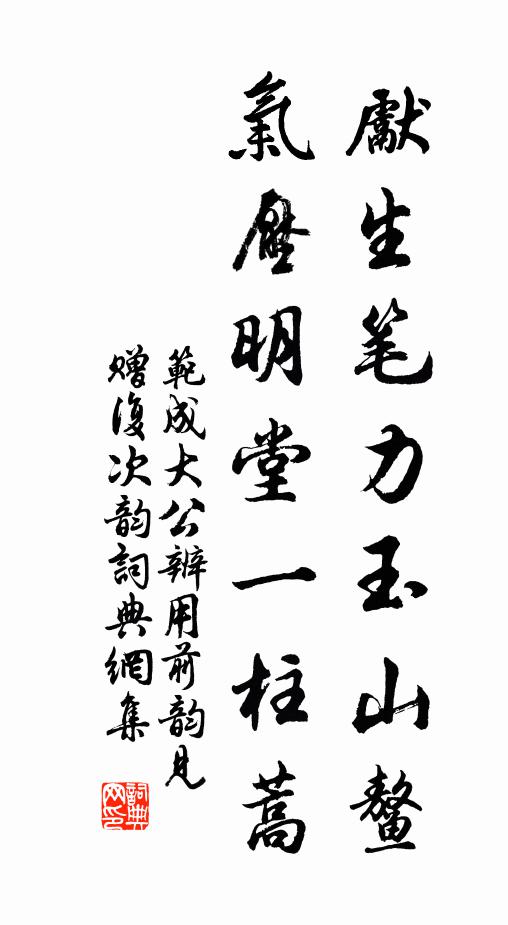 獻生笔力玉山鰲
氣壓明堂一柱蒿
範成大公辨用前韵見
赠復次韵詞典網集
詞典
网印